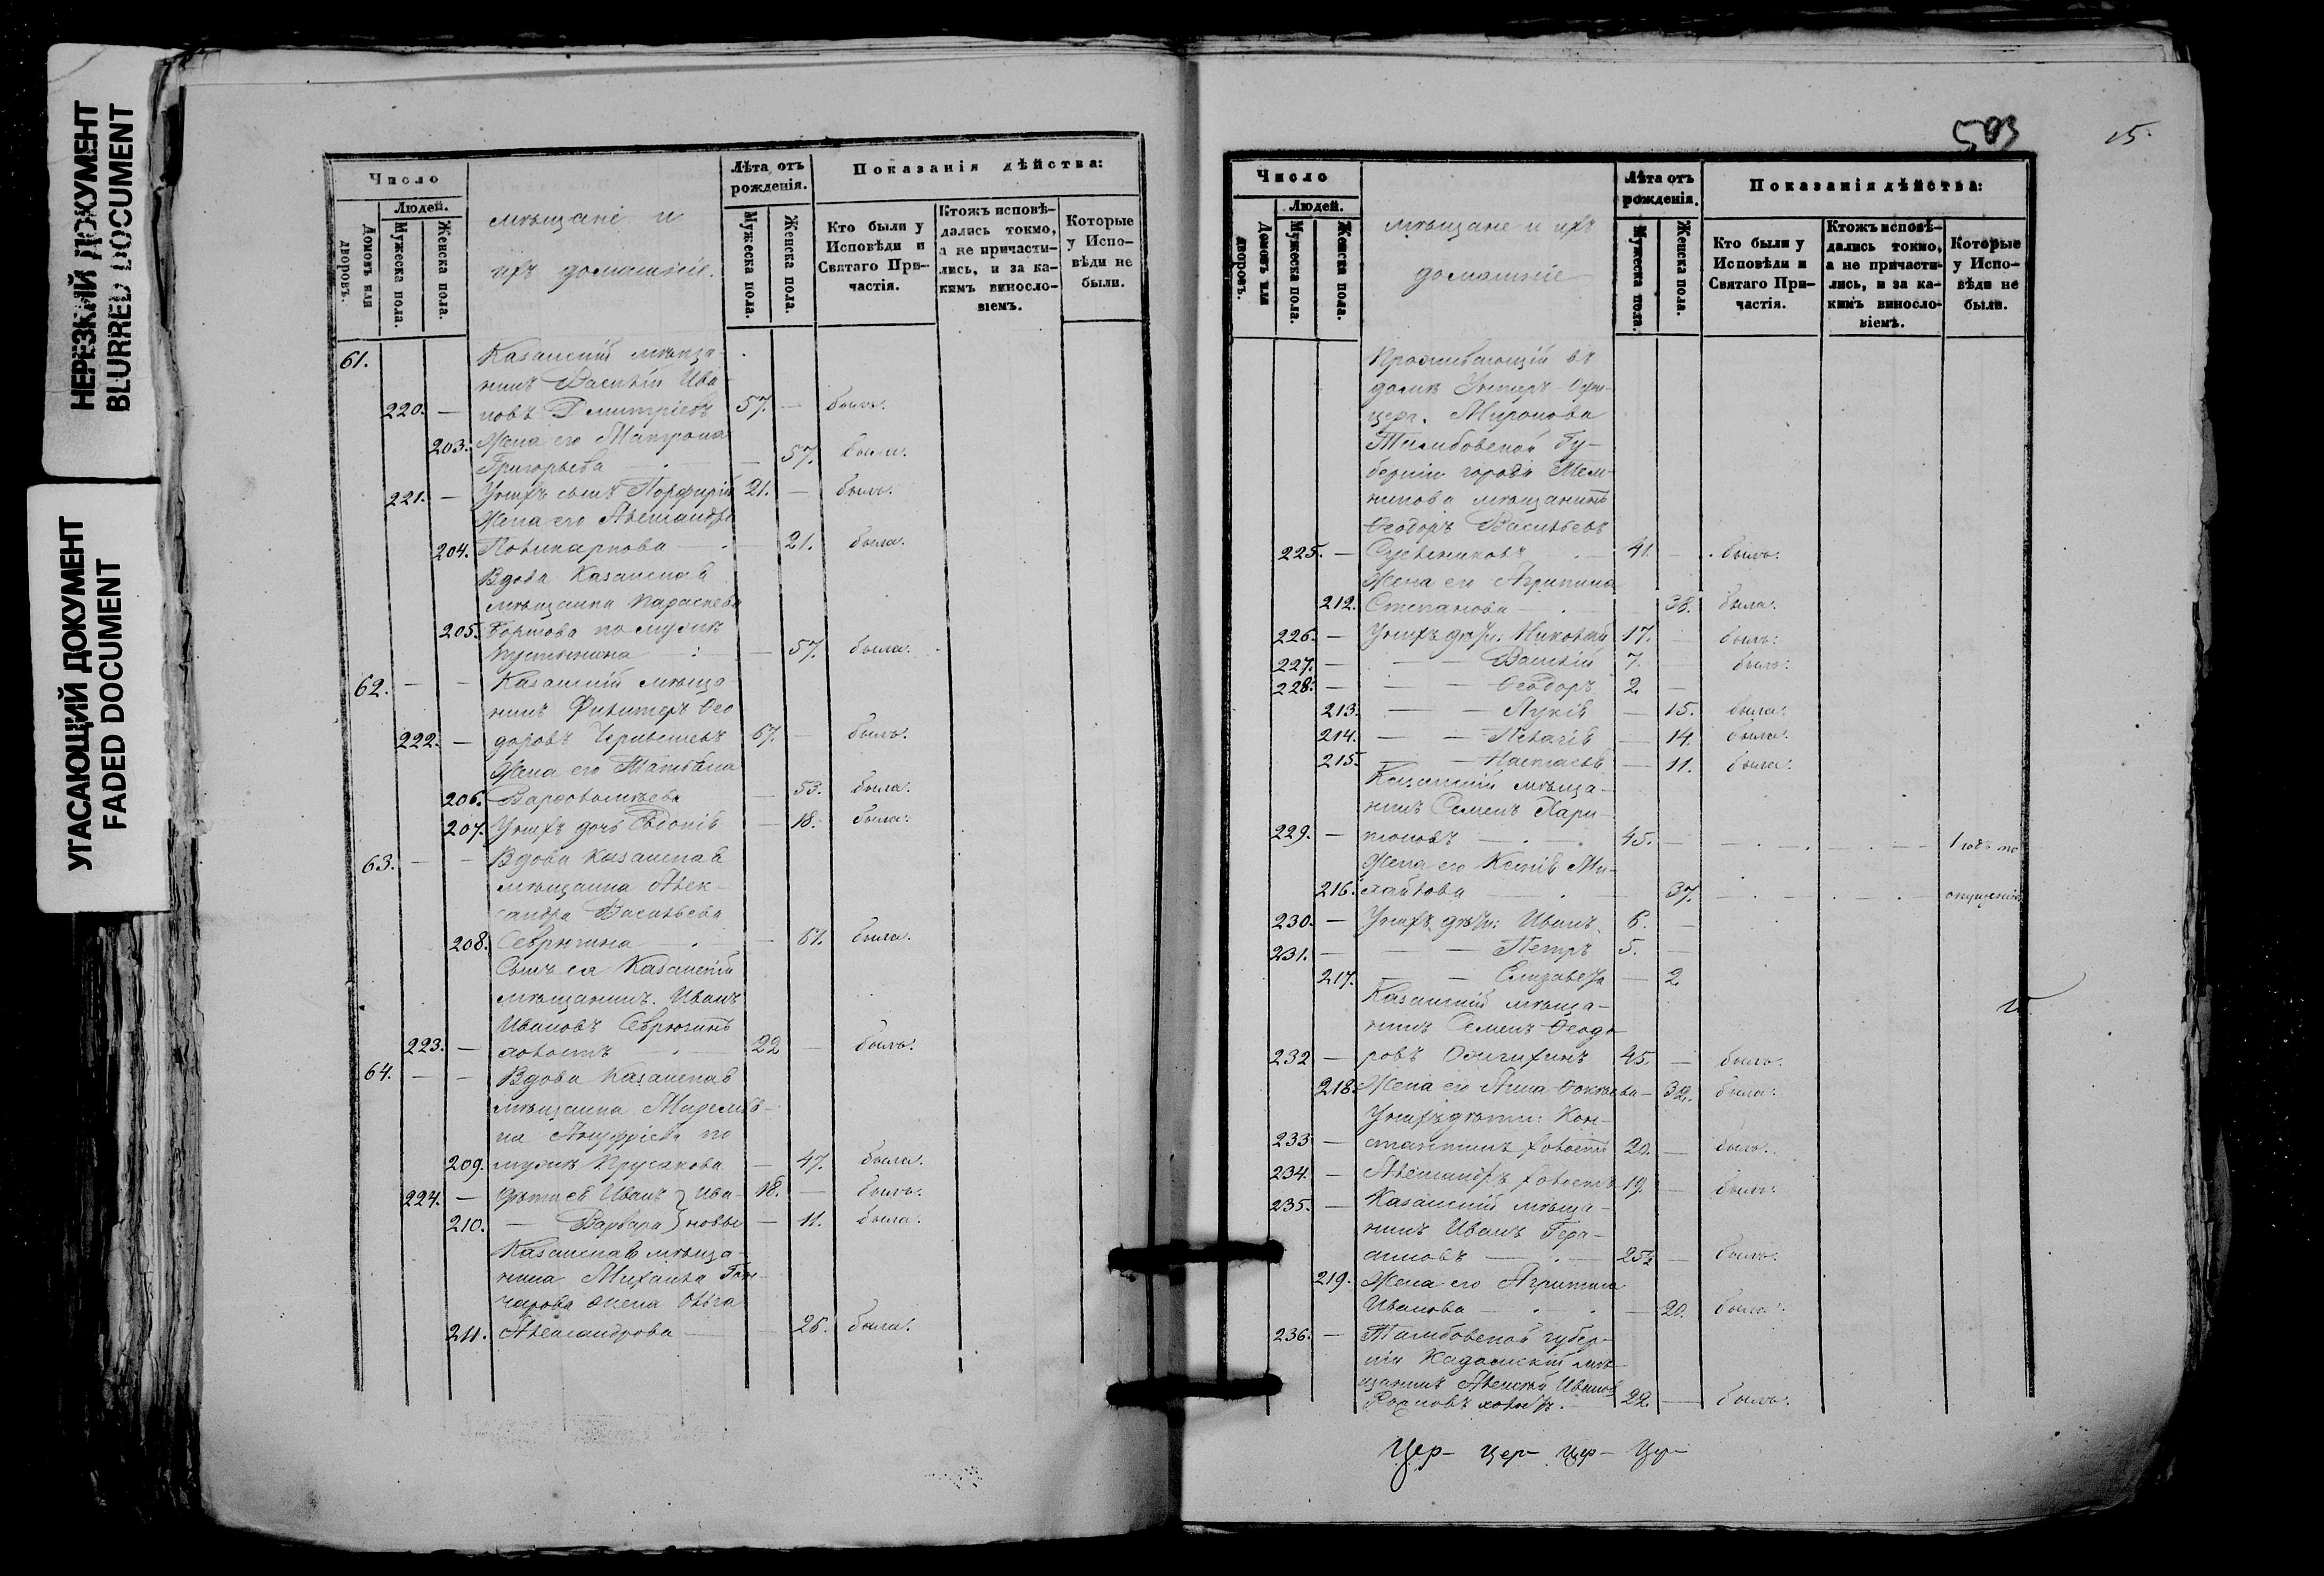 НЕРЕЗКИЙ ДОКУМЕНТ
BLURRED DOCUMENT
УГАСАЮЩИЙ ДОКУМЕНТ
FADED DOCUMENT
Число
Людей.
Домовъ или дворовъ.
Мужеска пола.
Женска пола.
мѣщане и
ихъ домашніе.
Лѣта отъ рожденія.
Мужеска пола.
Женска пола.
Показанія дѣйства:
Кто были у Исповѣди и Святаго Причастія.
Ктожъ исповѣдались токмо, а не причастились, и за какимъ винословіемъ.
Которые у Исповѣди не были.
61. Казанскій мѣща-
нинъ Василій Ива-
220. — новъ Дмитріевъ 57. — былъ.
203. Жена его Матрона
Григорьева — 57. была.
221. — У нихъ сынъ Порфирій 21. — былъ.
Жена его Александра
204. Поликарпова — 21. была.
Вдова Казанская
мѣщанка Параскева
205. по мужѣ
— 57. была.
62. — — Казанскій мѣща-
нинъ Филитеръ Ѳео
222. — доровъ 67. — былъ.
Жена его Татьяна
206. Варѳоломѣева — 53. была.
207. У нихъ дочь Евдокія — 18. была.
63. — — Вдова Казанская
мѣщанка Алек-
сандра Васильева
208. Севрюгина — 61. была.
Сынъ ея Казанскій
мѣщанинъ Иванъ
Ивановъ Севрюгинъ
223. — холостъ 22 — былъ.
64. — — Вдова Казанская
мѣщанка
на Ануфріева по
209. мужѣ Прусакова — 47. была.
224. — дѣти ея Иванъ } Ива- 18. — былъ.
210. — Варвара } новы — 11. была.
Казанскаго мѣща-
нина Михаила Гон-
чарова жена Ольга
211. Александрова — 26. была.
503
15.
Число
Людей.
Домовъ или дворовъ.
Мужеска пола.
Женска пола.
мѣщане и ихъ
домашніе
Лѣта отъ рожденія.
Мужеска пола.
Женска пола.
Показанія дѣйства:
Кто были у Исповѣди и Святаго Причастія.
Ктожъ исповѣдались токмо, а не причастились, и за какимъ винословіемъ.
Которые у Исповѣди не были.
Проживающій въ
домѣ Унтеръ-Офи-
цера Миронова
Тамбовской Гу-
берніи города Тем-
никова мѣщанинъ
Ѳеодоръ Васильевъ
225. — 41. — былъ.
Жена его Агрипина
212. Степанова — 38. была.
226. — У нихъ дѣти: Николай 17. — былъ.
227. — — — Василій 7. — былъ.
228. — — — Ѳеодоръ 2. —
213. — — Лукія — 15. была.
214. — — Пелагія — 14. была.
215. — — Настасья — 11. была.
Казанскій мѣща-
нинъ Семенъ Хари-
229. — тоновъ 45. — 1 годъ по
Жена его Ксенія Ми-
216. хайлова 37. опущенію
230. — У нихъ дѣти: Иванъ 6. —
231. — — — Петръ 5. —
217. — — Елизавета — 2
Казанскій мѣща-
нинъ Семенъ Ѳеодо
232 — ровъ Ожигихинъ 45. — былъ.
218. Жена его Анна — 32. была.
У нихъ дѣти: Кон-
233 — стантинъ холостъ 20. — былъ.
234. — Александръ холостъ 19. — былъ.
235. — Казанскій мѣща-
нинъ Иванъ Гера-
симовъ 25½ — былъ.
219. Жена его Агрипина
Иванова — 20. была.
236. — Тамбовской губер-
ніи Кадомскій мѣ-
щанинъ Алексѣй Ивановъ
холостъ. 22. — былъ.
Цер- цер- цер- цер-